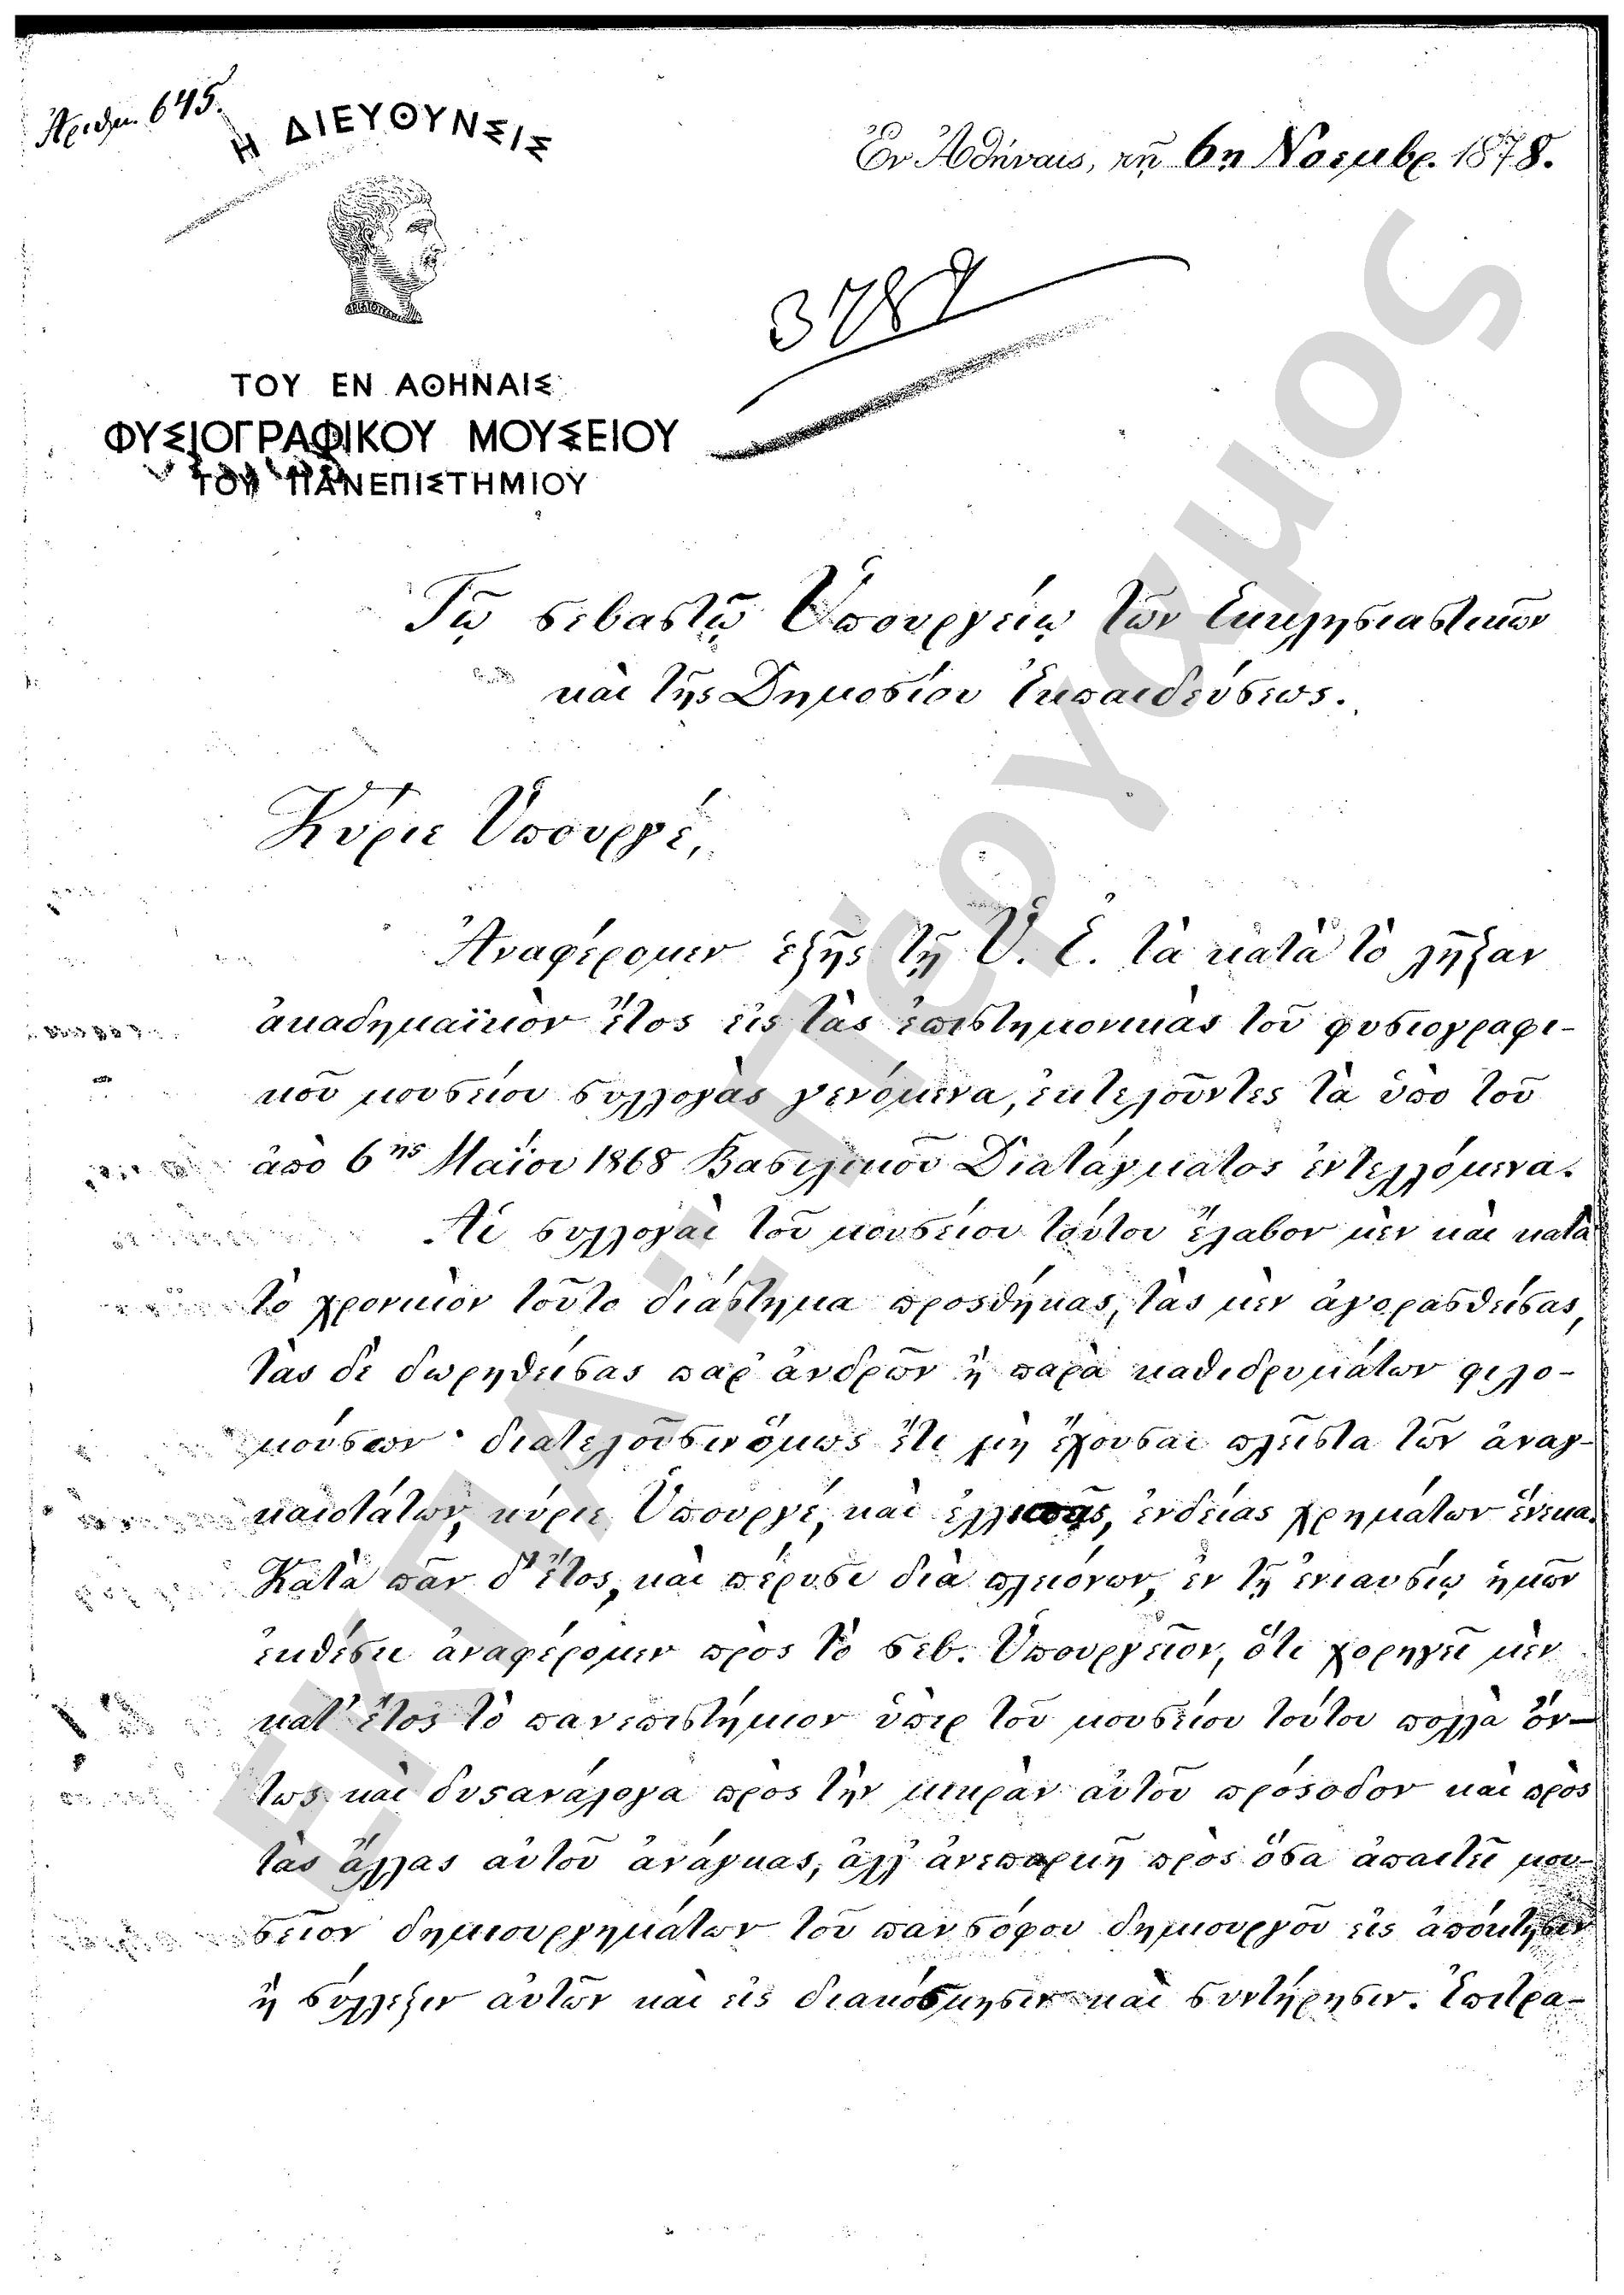 Ἀριθμ. 645.
Η ΔΙΕΥΘΥΝΣΙΣ
Ἐν Ἀθήναις, τῇ 6ῃ Νοεμβρ. 1878.
3787
ΤΟΥ ΕΝ ΑΘΗΝΑΙΣ
ΦΥΣΙΟΓΡΑΦΙΚΟΥ ΜΟΥΣΕΙΟΥ
ΤΟΥ ΠΑΝΕΠΙΣΤΗΜΙΟΥ
Τῷ σεβαστῷ Ὑπουργείῳ τῶν Ἐκκλησιαστικῶν
καὶ τῆς Δημοσίου Ἐκπαιδεύσεως.
Κύριε Ὑπουργέ,
Ἀναφέρομεν ἑξῆς τῇ Ὑ. Ἐ. τὰ κατὰ τὸ λῆξαν
ἀκαδημαϊκὸν ἔτος εἰς τὰς ἐπιστημονικὰς τοῦ φυσιογραφι-
κοῦ μουσείου συλλογὰς γενόμενα, ἐκτελοῦντες τὰ ὑπὸ τοῦ
ἀπὸ 6ης Μαΐου 1868 Βασιλικοῦ Διατάγματος ἐντελλόμενα.
Αἱ συλλογαὶ τοῦ μουσείου τούτου ἔλαβον μὲν καὶ κατὰ
τὸ χρονικὸν τοῦτο διάστημα προσθήκας, τὰς μὲν ἀγορασθείσας,
τὰς δὲ δωρηθείσας παρ' ἀνδρῶν ἢ παρὰ καθιδρυμάτων φιλο-
μούσων· διατελοῦσιν ὅμως ἔτι μὴ ἔχουσαι πλεῖστα τῶν ἀναγ-
καιοτάτων, κύριε Ὑπουργέ, καὶ ἐλλιπεῖς, ἐνδείας χρημάτων ἕνεκα.
Κατὰ πᾶν δ' ἔτος, καὶ πέρυσι διὰ πλειόνων, ἐν τῇ ἐνιαυσίῳ ἡμῶν
ἐκθέσει ἀναφέρομεν πρὸς τὸ σεβ. Ὑπουργεῖον, ὅτι χορηγεῖ μὲν
κατ' ἔτος τὸ πανεπιστήμιον ὑπὲρ τοῦ μουσείου τούτου πολλὰ ὄν-
τως καὶ δυσανάλογα πρὸς τὴν μικρὰν αὐτοῦ πρόσοδον καὶ πρὸς
τὰς ἄλλας αὐτοῦ ἀνάγκας, ἀλλ' ἀνεπαρκῆ πρὸς ὅσα ἀπαιτεῖ μου-
σεῖον δημιουργημάτων τοῦ πανσόφου δημιουργοῦ εἰς ἀπόκτησιν
ἢ σύλλεξιν αὐτῶν καὶ εἰς διακόσμησιν καὶ συντήρησιν. Ἐπιτρα-
ΕΚΠΑ - Περγαμος